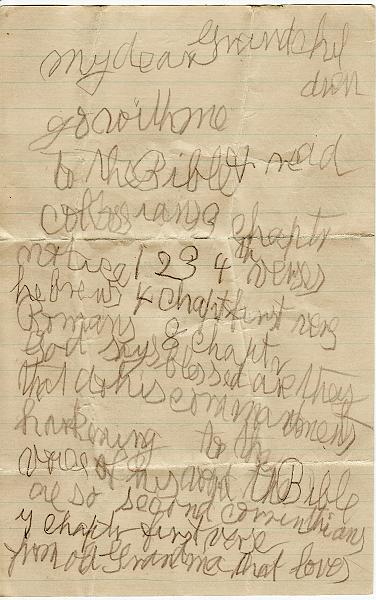 my dear Grandchil
dren
go with me
to the Bible & read
colossians 3 chaptr
notice 1 2 3 4 verses
hebrews 4 chaptr first vers
Romans 8 chaptr
God says blessed are they
that do his commandments
harkening to the
voice of his word the Bible
also second corinthians
chaptr first verse
from old Grandma that loves